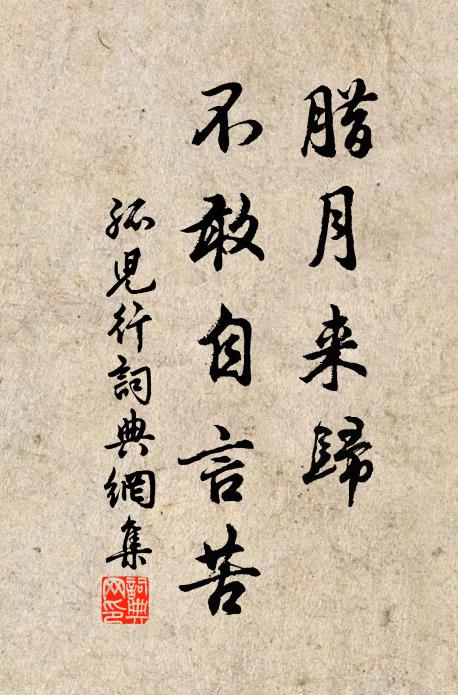 腊月来歸
不敢自言苦
孤児行詞典網集
詞典網印